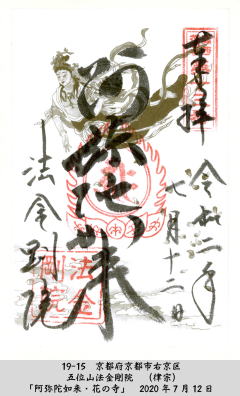 奉拝
令和二年
七月十二日
阿弥陀如来
法金剛院
法金
剛院
19-15　京都府京都市右京区
五位山法金剛院　（律宗）
「阿弥陀如来・花の寺」　2020年7月12日